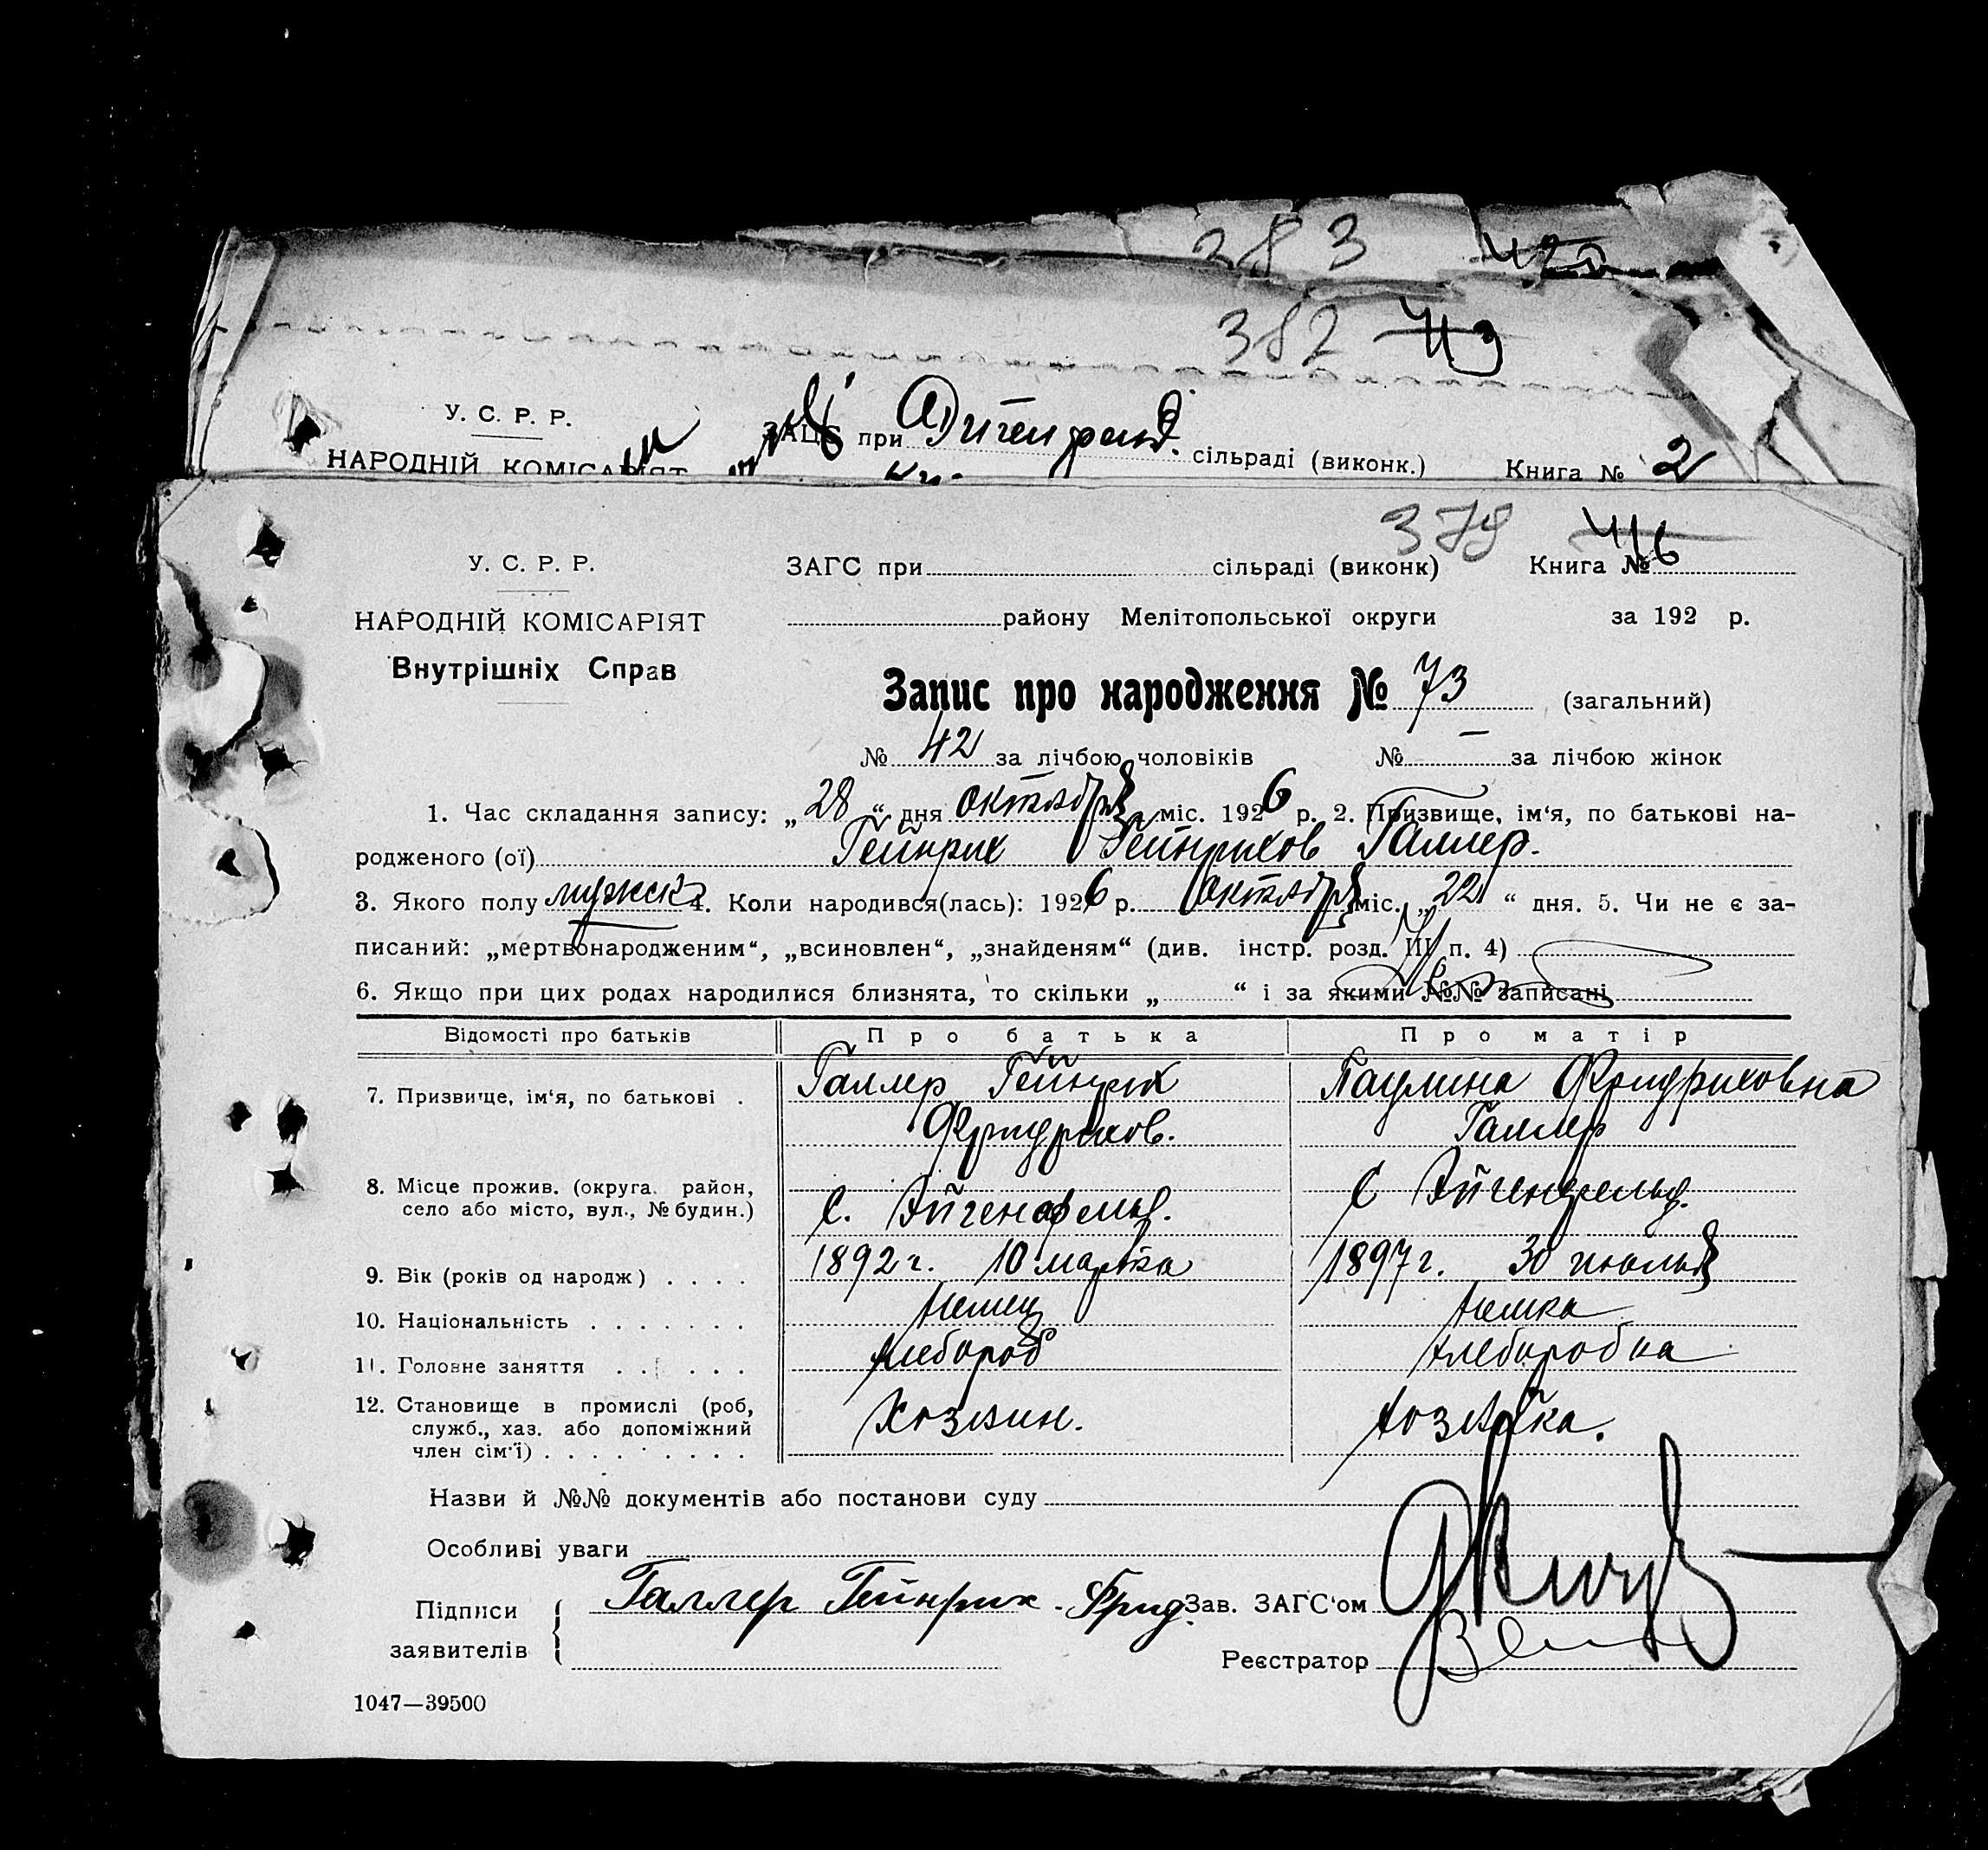 283 420
382 413
У. С. Р. Р.
ЗАГС при Эйгенфельд. сільраді (виконк.) Книга № 2
НАРОДНІЙ КОМІСАРІЯТ
379 416
У. С. Р. Р. ЗАГС при сільраді (виконк) Книга №
НАРОДНІЙ КОМІСАРІЯТ району Мелітопольської округи за 192 р.
Внутрішніх Справ
Запис про народження № 73 (загальний)
№ 42 за лічбою чоловіків № — за лічбою жінок
1. Час складання запису: „28“ дня октября міс. 1926 р. 2. Призвище, ім‘я, по батькові на-
родженого (ої) Гейнрих Гейнрихов Галлер.
3. Якого полу мужск 4. Коли народився(лась): 1926 р. октября міс. „22“ дня. 5. Чи не є за-
писаний: „мертвонародженим“, „всиновлен“, „знайденям“ (див. інстр. розд. III п. 4)
6. Якщо при цих родах народилися близнята, то скільки „ “ і за якими №№ записані
Відомості про батьків Про батька Про матір
7. Призвище, ім‘я, по батькові . Галлер Гейнрих Паулина Фридриховна
Фридрихов. Галлер
8. Місце прожив. (округа район,
село або місто, вул., № будин.) с. Эйгенфельд. с Эйгенфельд.
9. Вік (років од народж) . . . . 1892 г. 10 марта 1897 г. 30 июля
10. Національність . . . . . . . немец немка
11. Головне заняття . . . . . хлебороб хлеборобка
12. Становище в промислі (роб,
служб., хаз. або допоміжний
член сім‘ї) . . . . . . . . хозяин. хозяйка.
Назви й №№ документів або постанови суду
Особливі уваги
Підписи Галлер Гейнрих - Фрид. Зав. ЗАГС‘ом
заявителів Реєстратор
1047—39500